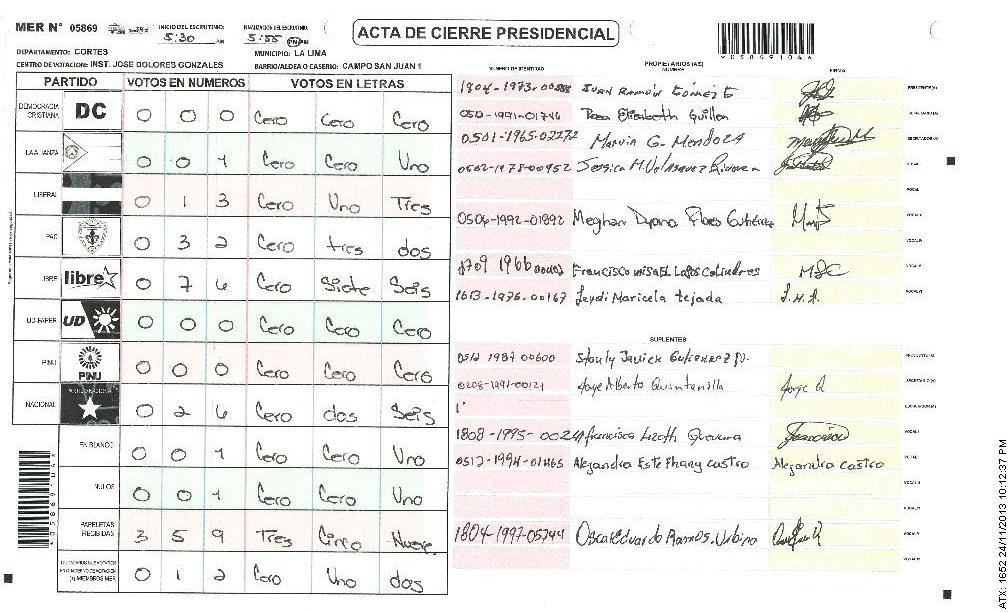 MER N° 05869
INICIO DEL ESCRUTINIO: 5:30
FINALIZACION DEL ESCRUTINIO: 5:55 PM
ACTA DE CIERRE PRESIDENCIAL
DEPARTAMENTO: CORTES
MUNICIPIO: LA LIMA
CENTRO DE VOTACION: INST. JOSE DOLORES GONZALES
BARRIO/ALDEA O CASERIO: CAMPO SAN JUAN 1
PARTIDO VOTOS EN NUMEROS VOTOS EN LETRAS
DEMOCRACIA CRISTIANA DC 0 0 0 Cero Cero Cero
LA ALIANZA 0 0 1 Cero Cero Uno
LIBERAL 0 1 3 Cero Uno Tres
PAC 0 3 2 Cero tres dos
LIBRE libre 0 7 6 Cero Siete Seis
UD-FAPER UD 0 0 0 Cero Cero Cero
PINU PINU 0 0 0 Cero Cero Cero
NACIONAL 0 2 6 Cero dos Seis
EN BLANCO 0 0 1 Cero Cero Uno
NULOS 0 0 1 Cero Cero Uno
PAPELETAS RECIBIDAS 3 5 9 Tres Cinco Nueve
(+) MIEMBROS MER 0 1 2 Cero Uno dos
NUMERO DE IDENTIDAD PROPIETARIOS (AS) NOMBRE FIRMA
1804-1973-00558 JUAN RAMON GOMEZ PRESIDENTE(A)
0501-1991-01746 Rosa Elizabeth Guillen SECRETARIO(A)
0501-1965-02272 Marvin G. Mendoza ESCRUTADOR(A)
0502-1978-00952 Jessica M. Velasquez Rivera VOCAL
VOCAL
0506-1992-01892 Meghan Dyana Flores Gutierrez
1709 1966 Francisco misael Lagos Colindres
1613-1976-00167 Leydi Maricela tejada
SUPLENTES
0512 1987 00600 Stanly Javier Gutierrez
0208-1991-00121 Jorge Alberto Quintanilla Jorge Q
1808-1995-0024 francisca Lizeth Guevara
0512-1994-01465 Alejandra Estefhany castro Alejandra Castro
1804-1997-05744 Oscar Eduardo Ramos. Urbina
ATX: 1652 24/11/2013 10:12:37 PM